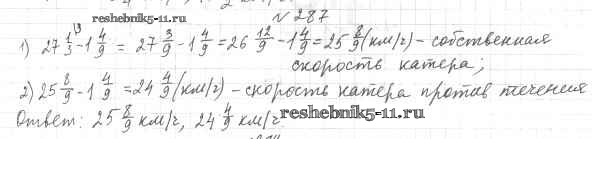 № 287
www.reshebniki5-11.ru
1) 27 1/3 \3 - 1 4/9 = 27 3/9 - 1 4/9 = 26 12/9 - 1 4/9 = 25 8/9 (км/г) - собственная
скорость катера;
2) 25 8/9 - 1 4/9 = 24 4/9 (км/г) - скорость катера против течения
www.reshebniki5-11.ru
Ответ: 25 8/9 км/г, 24 4/9 км/г.